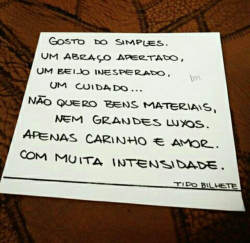 GOSTO DO SIMPLES.
UM ABRAÇO APERTADO,
UM BEIJO INESPERADO,
UM CUIDADO...
NÃO QUERO BENS MATERIAIS,
NEM GRANDES LUXOS.
APENAS CARINHO E AMOR.
COM MUITA INTENSIDADE.
TIPO BILHETE